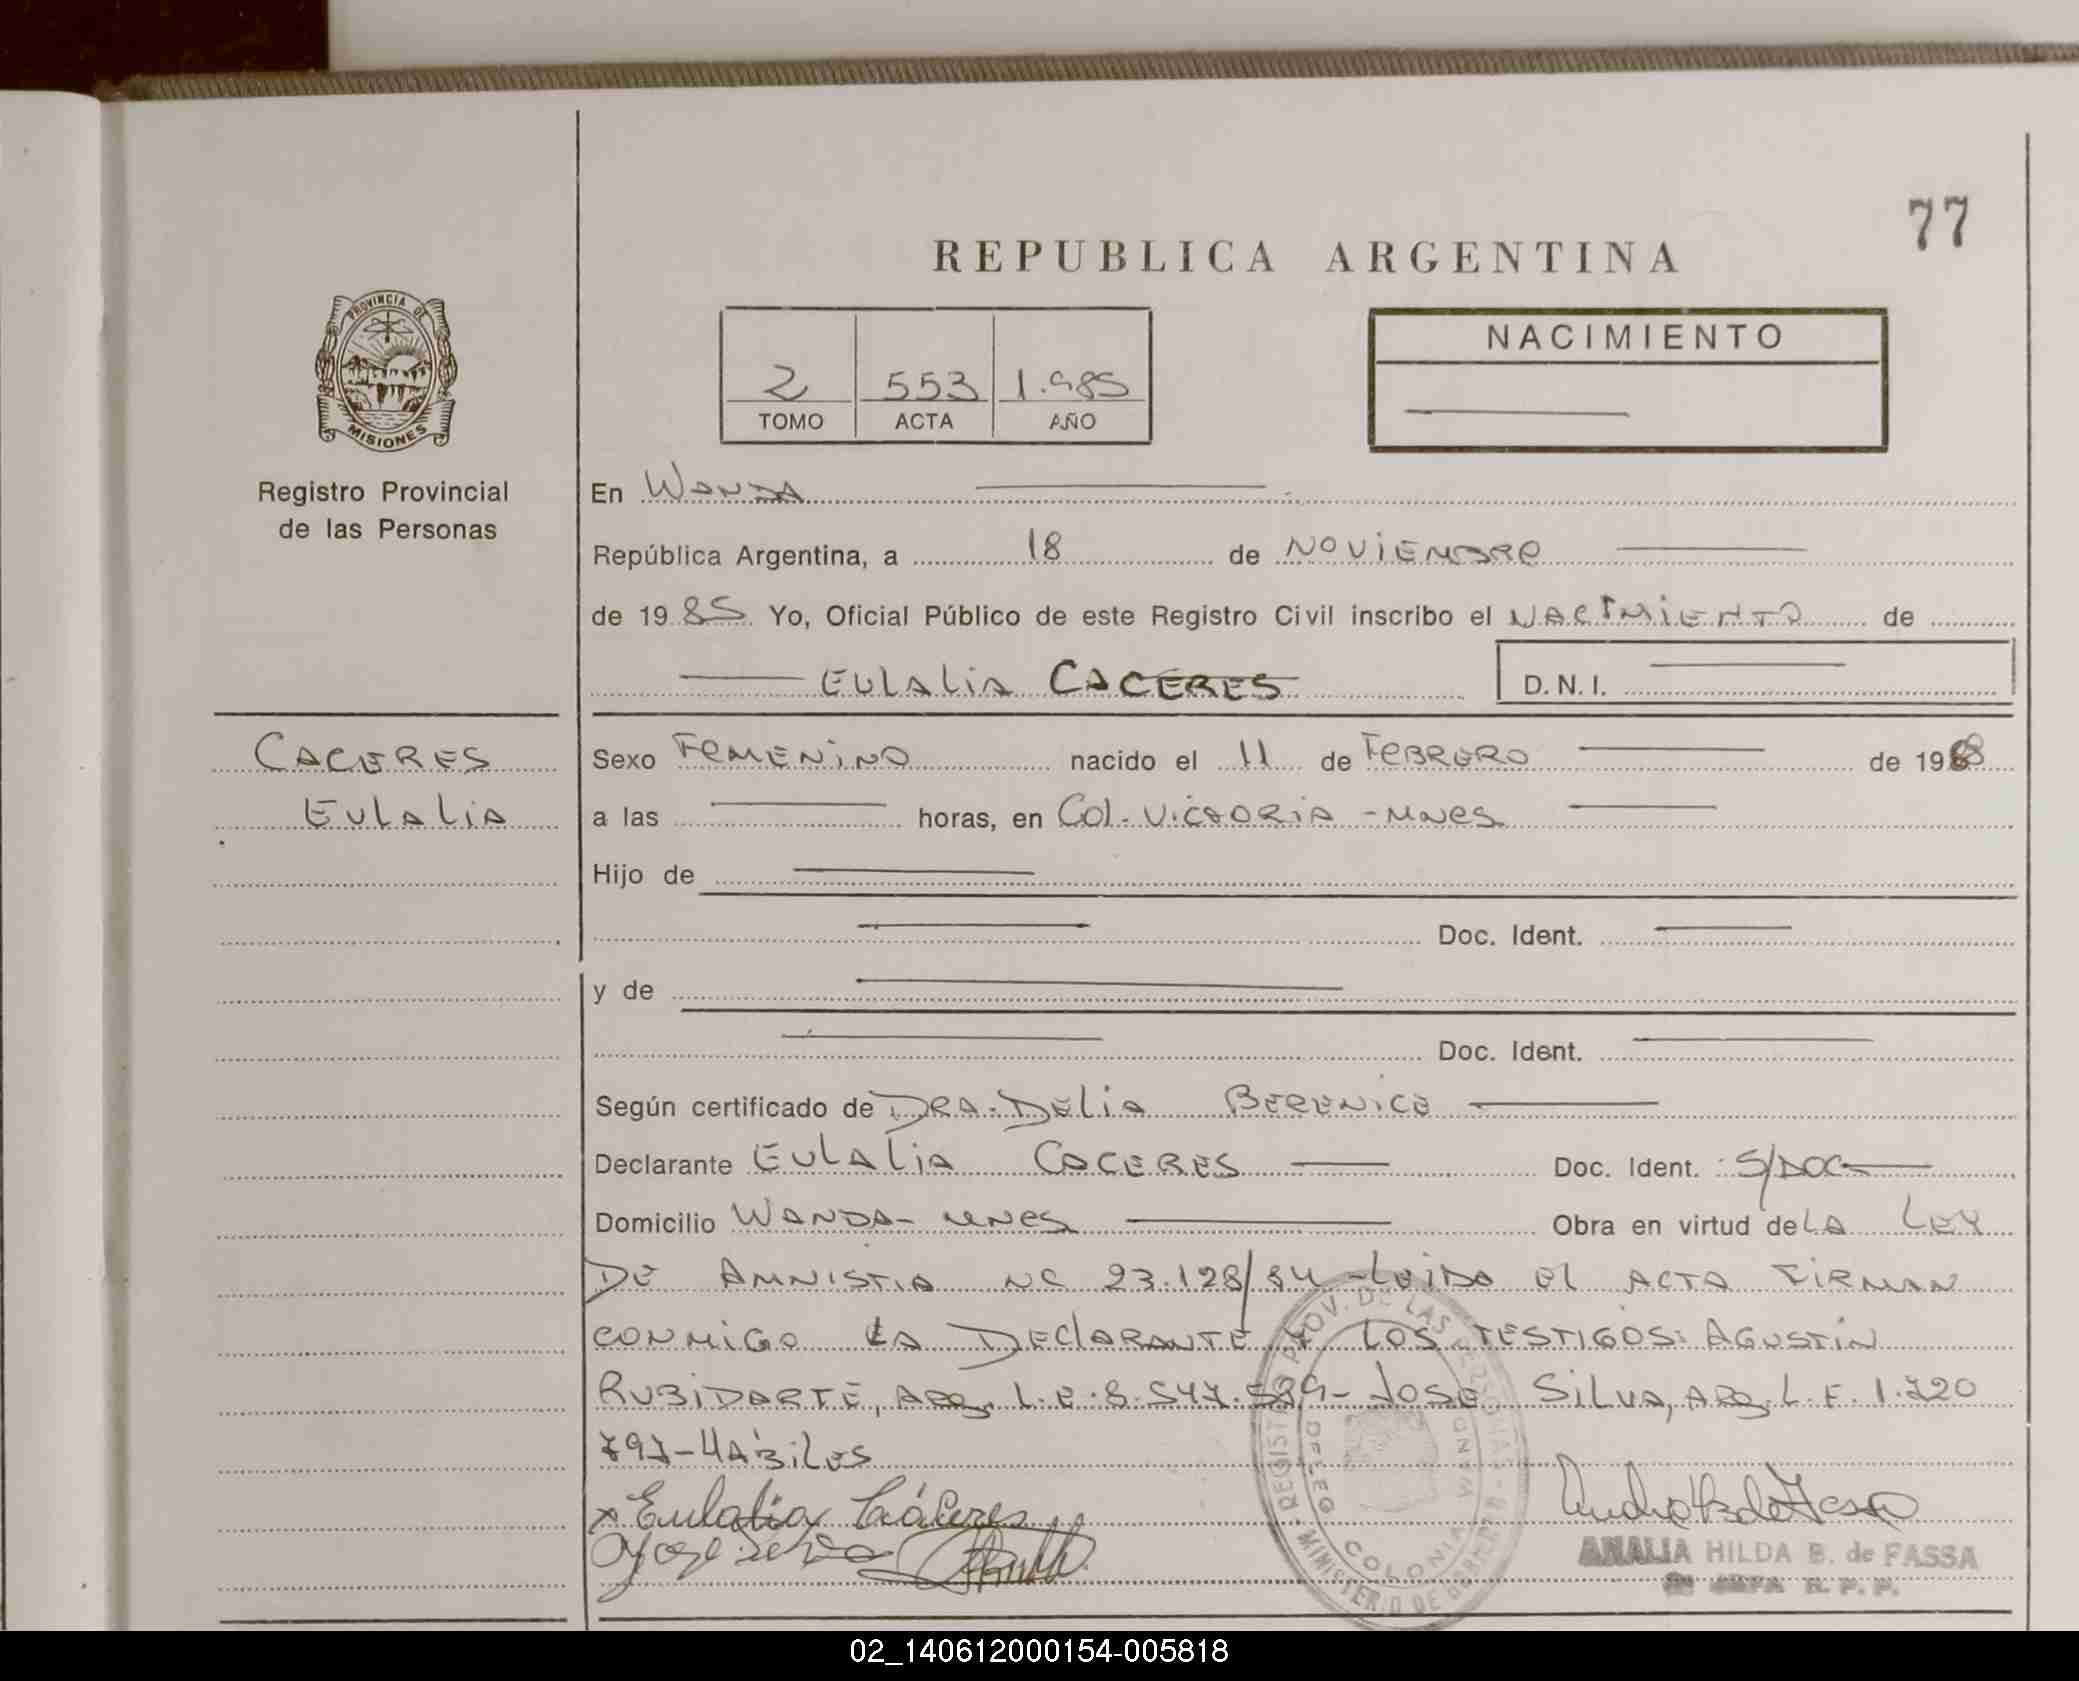 77
REPUBLICA ARGENTINA
PROVINCIA DE
MISIONES
Registro Provincial
de las Personas
NACIMIENTO
2 553 1.985
TOMO ACTA AÑO
En WANDA
República Argentina, a 18 de NOVIEMBRE
de 1985 Yo, Oficial Público de este Registro Civil inscribo el NACIMIENTO de
EULALIA CACERES D.N.I.
CACERES
EULALIA
Sexo FEMENINO nacido el 11 de FEBRERO de 1968
a las horas, en Col. VICTORIA - MNES
Hijo de
Doc. Ident.
y de
Doc. Ident.
Según certificado de DRA. DELIA BERENICE
Declarante EULALIA CACERES Doc. Ident. S/DOC
Domicilio WANDA - MNES Obra en virtud de LA LEY
DE AMNISTIA NC 23.128/84 - LEIDA EL ACTA FIRMAN
CONMIGO LA DECLARANTE Y LOS TESTIGOS: AGUSTIN
RUBIDARTE, ARG. L.E. 8.547.589 - JOSE SILVA, ARG. L.E. 1.720
797 - HABILES
x Eulalia Cáceres
Jose Selva
ANALIA HILDA B. de FASSA
JEFA R.P.P.
REGISTRO PROV. DE LAS PERSONAS
MINISTERIO DE GOBIERNO
COLONIA WANDA
02_140612000154-005818